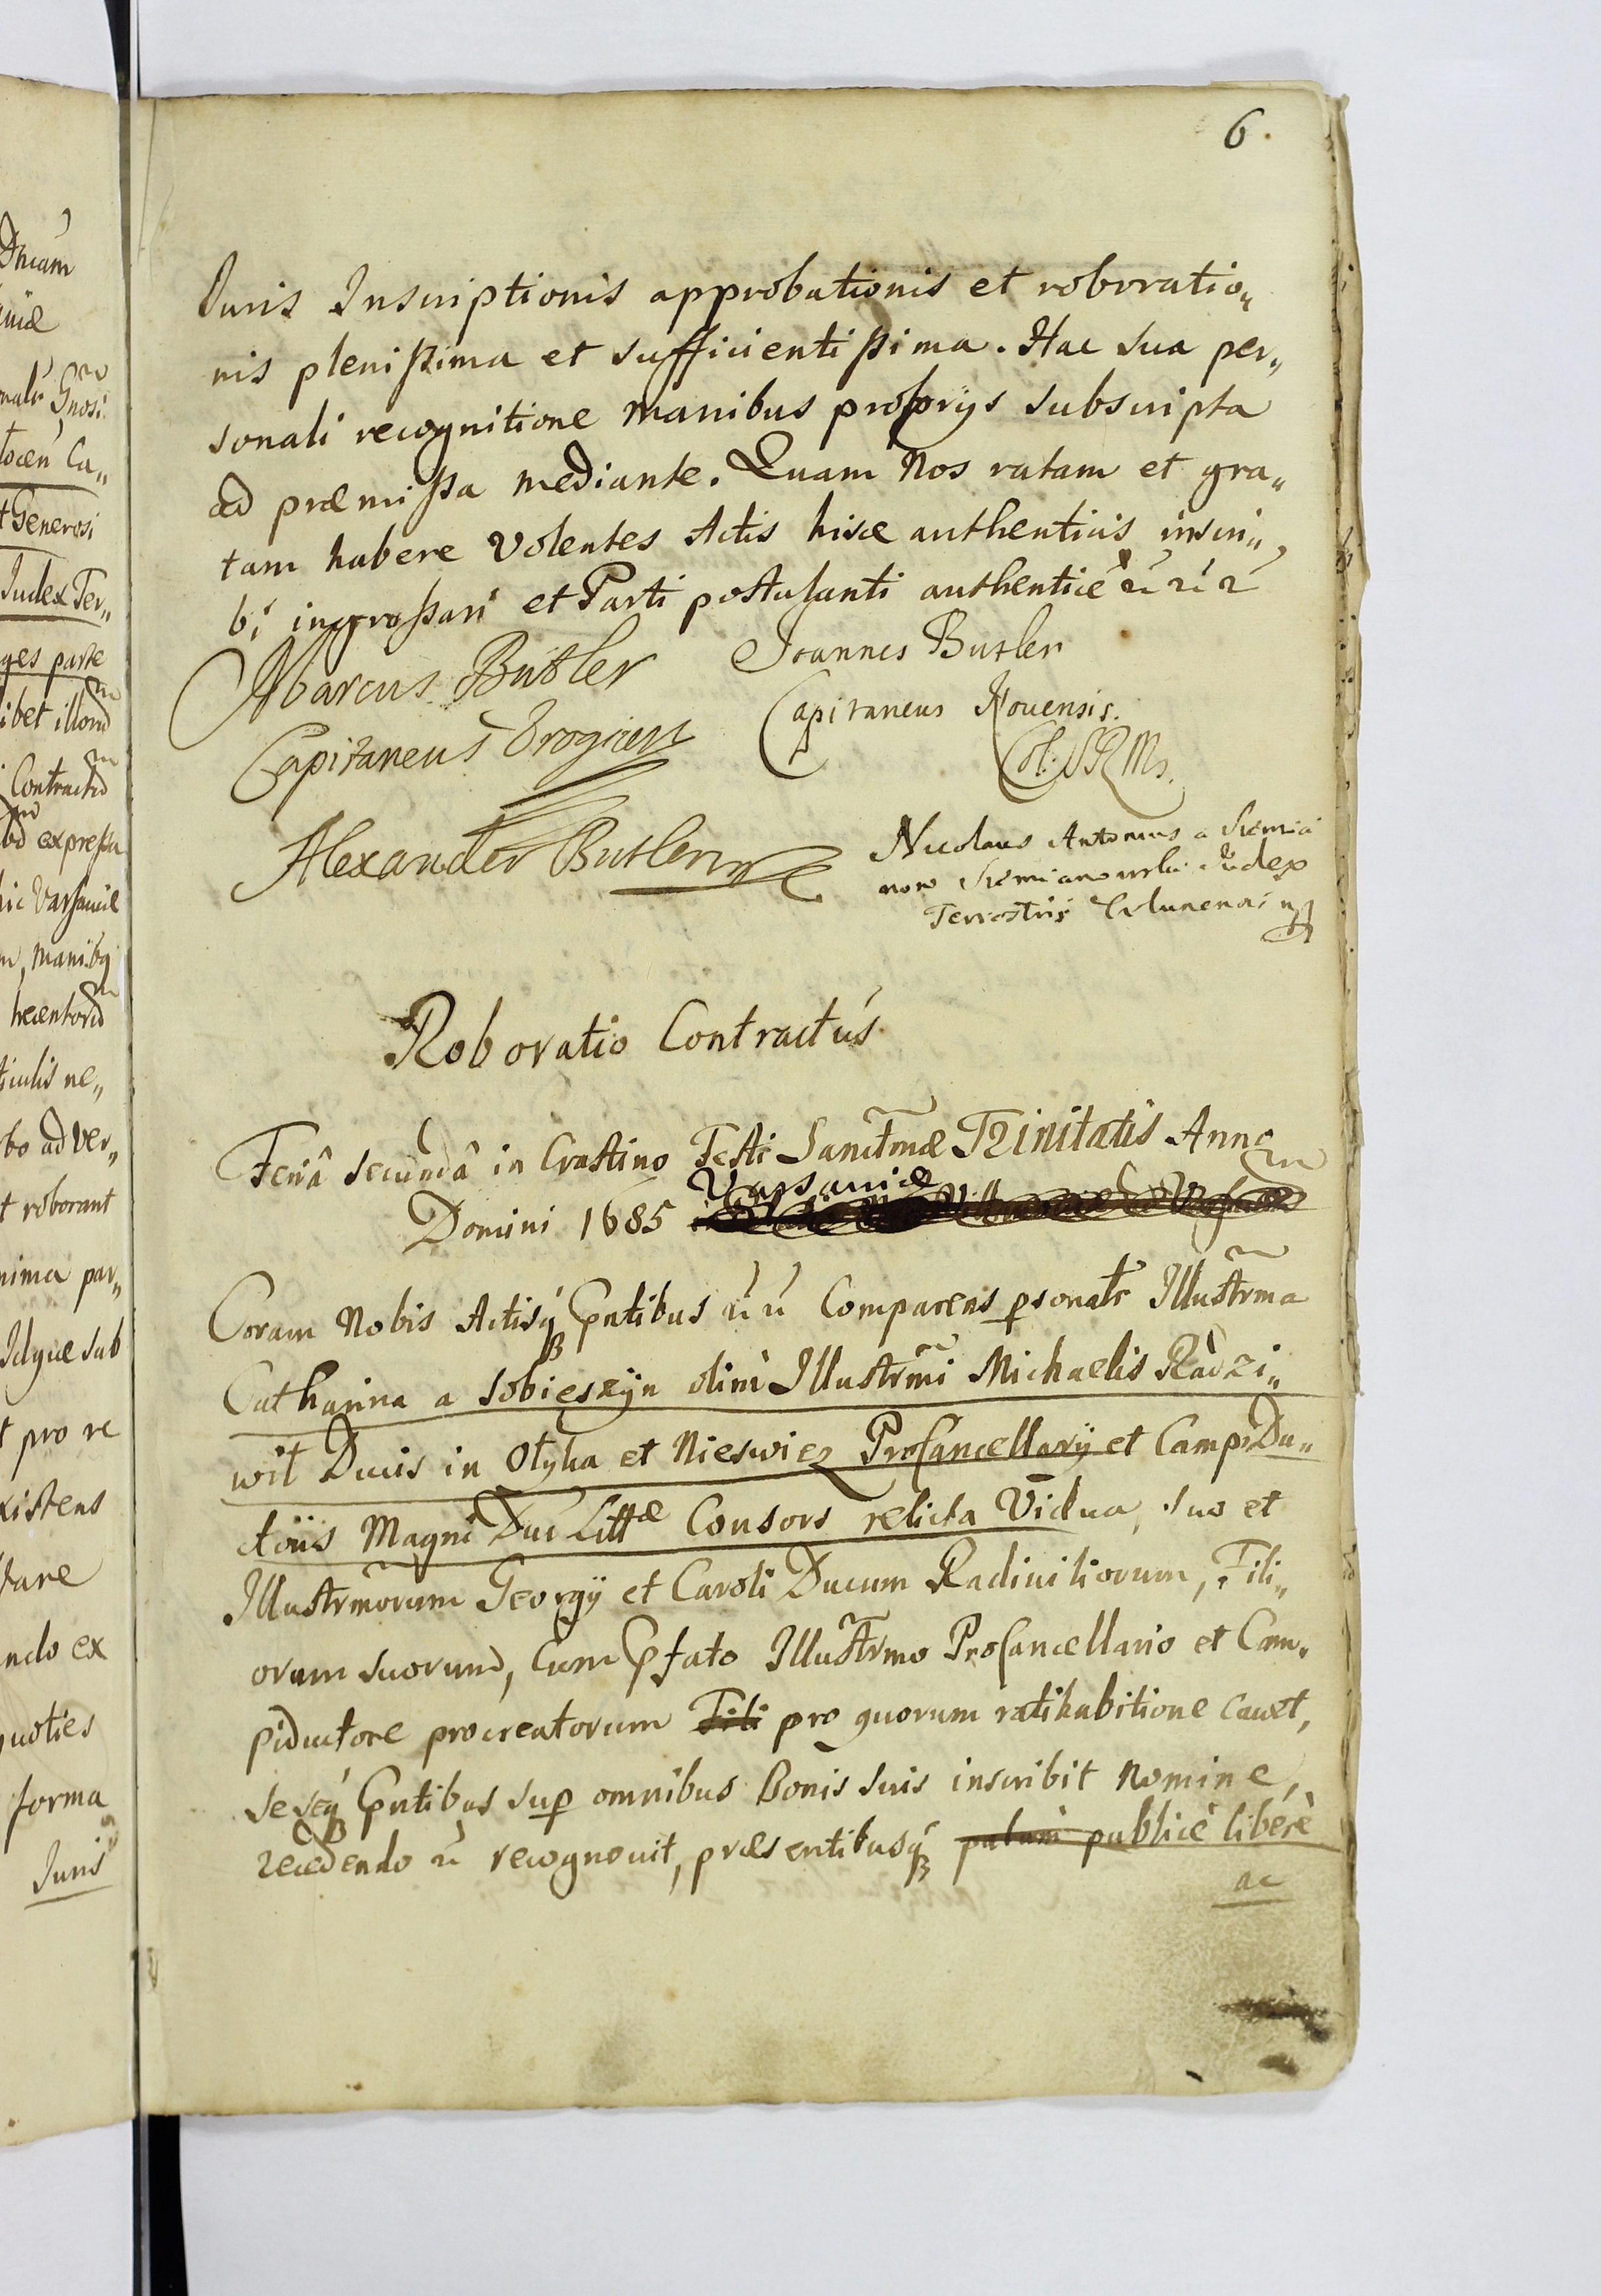 6.
Juris Inscriptionis approbationis et roboratio„
nis plenissima et sufficientissima. Hac sua per„
sonali recognitione manibus proprijs subscripta
ad præmissa mediante. Quam Nos ratam et gra„
tam habere Volentes Actis hisce authenticis inscri„
bi ingrossari et Parti postulanti authenticè
Marcus Butler
Capitaneus Drogicen
Joannes Butler
Capitaneus Nouensis.
Col. S R Ms.
Alexander Butler
Nicolaus Antonius a Siemia
now Siemianowski Judex
Terrestris Wlunensi
Roboratio Contractus
Feriâ secundâ in Crastino Festi Sanctmæ Trinitatis Anno
Varsaviæ
Domini 1685
Coram Nobis Actisq Pntibus Comparens psonalr Illustrma
Catharina a Sobieszyn olim Illustrmi Michaelis Radzi„
wil Ducis in Olyka et Nieswiez ProCancellarij et CampiDu„
ctoris Magni Duc Littæ Consors relicta Vidua, suo et
Illustrmorum Georgij et Caroli Ducum Radiviliorum, Fili„
orum suorum, cum Pfato Illustrmo ProCancellario et Cam„
piductore procreatorum Fili pro quorum ratihabitione cauet,
seseq Pntibus sup omnibus Bonis suis inscribit nomine,
recedendo recognouit, præsentibusq palam publicè liberè
ac
Dncam
Gnosi
Ca„
t Generosi
Judex Ter„
ges parte
ibet illorum
Contractu
expressa
hic Varsaviæ
manibq
ticulis ne„
bo ad ver„
t roborant
nima par„
Idque sub
t pro re
xistens
dare
ndo ex
quoties
forma
Juris